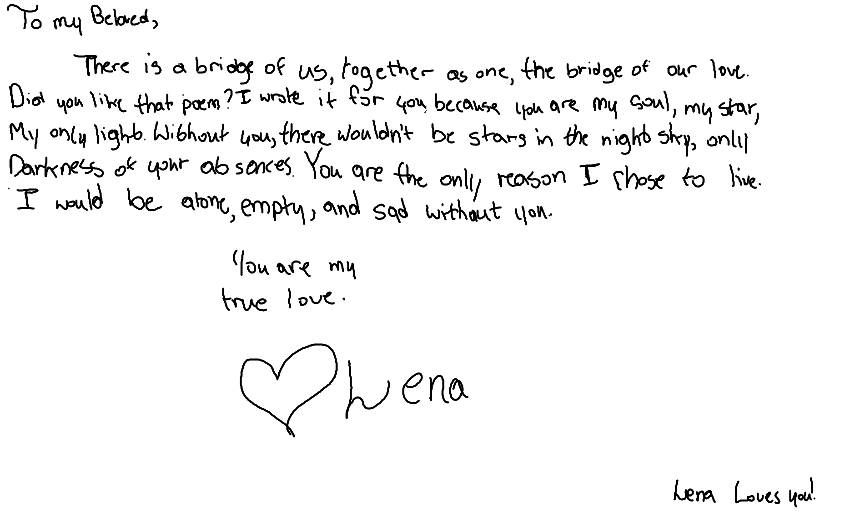 To my Beloved,
There is a bridge of us, together as one, the bridge of our love.
Did you like that poem? I wrote it for you, because you are my soul, my star,
My only light. Without you, there wouldn't be stars in the night sky, only
Darkness of your absences. You are the only reason I chose to live.
I would be alone, empty, and sad without you.
You are my
true love.
Lena
Lena Loves you!